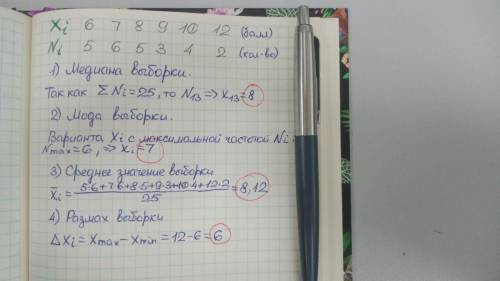 Xi 6 7 8 9 10 12 (балл)
Ni 5 6 5 3 4 2 (кол-во)
1) Медиана выборки.
Так как ΣNi=25, то N13 => X13=8
2) Мода выборки.
Варианта Xi с максимальной частотой Ni
Nmax=6, => Xi=7
3) Среднее значение выборки
X̄i = (5·6+7·6+8·5+9·3+10·4+12·2)/25 = 8,12
4) Размах выборки
ΔXi = Xmax - Xmin = 12-6=6